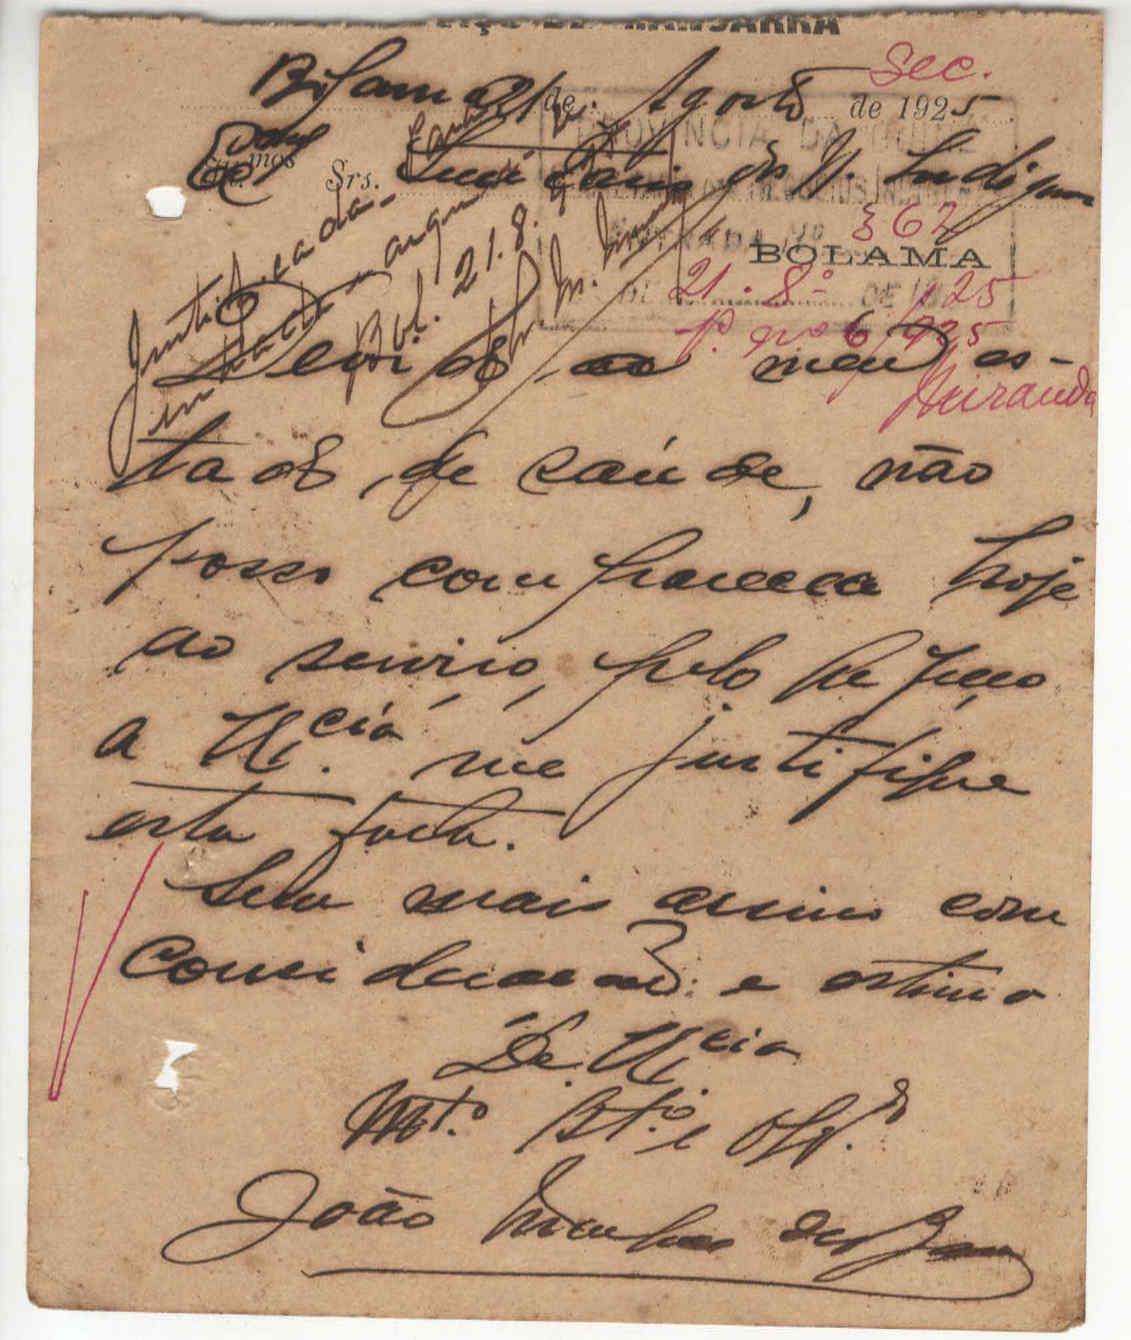 Sec.
Bolama 21 de Agosto de 1925
Srs. Secretario dos N. Indigenas
PROVINCIA DA GUINÉ
362
BOLAMA
21 . 8º DE 1925
P. nº 6/925
Miranda
Justificada.
Bol. 21.8.
Devido ao meu es-
tado, de saúde, não
posso comparecer hoje
ao serviço, pelo que peço
a V.cia me justifique
esta falta.
Sem mais assino com
consideração e estima
De V.cia
Mt.º At.º e Obg.do
João